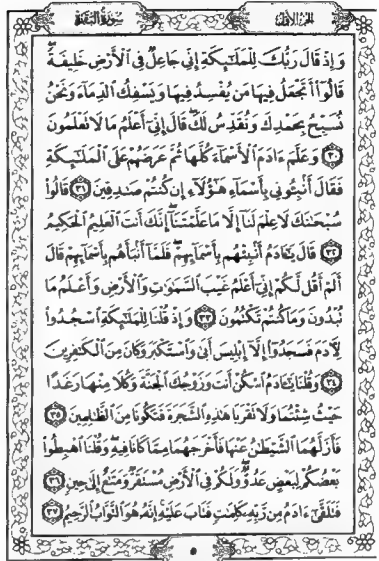 سُورَةُ البَقَرَةِ الجُزْءُ الأَوَّلُ
وَإِذْ قَالَ رَبُّكَ لِلْمَلَٰٓئِكَةِ إِنِّى جَاعِلٌ فِى ٱلْأَرْضِ خَلِيفَةً ۖ
قَالُوٓا۟ أَتَجْعَلُ فِيهَا مَن يُفْسِدُ فِيهَا وَيَسْفِكُ ٱلدِّمَآءَ وَنَحْنُ
نُسَبِّحُ بِحَمْدِكَ وَنُقَدِّسُ لَكَ ۖ قَالَ إِنِّىٓ أَعْلَمُ مَا لَا تَعْلَمُونَ
٣٠ وَعَلَّمَ ءَادَمَ ٱلْأَسْمَآءَ كُلَّهَا ثُمَّ عَرَضَهُمْ عَلَى ٱلْمَلَٰٓئِكَةِ
فَقَالَ أَنۢبِـُٔونِى بِأَسْمَآءِ هَٰٓؤُلَآءِ إِن كُنتُمْ صَٰدِقِينَ ٣١ قَالُوا۟
سُبْحَٰنَكَ لَا عِلْمَ لَنَآ إِلَّا مَا عَلَّمْتَنَآ ۖ إِنَّكَ أَنتَ ٱلْعَلِيمُ ٱلْحَكِيمُ
٣٢ قَالَ يَٰٓـَٔادَمُ أَنۢبِئْهُم بِأَسْمَآئِهِمْ ۖ فَلَمَّآ أَنۢبَأَهُم بِأَسْمَآئِهِمْ قَالَ
أَلَمْ أَقُل لَّكُمْ إِنِّىٓ أَعْلَمُ غَيْبَ ٱلسَّمَٰوَٰتِ وَٱلْأَرْضِ وَأَعْلَمُ مَا
تُبْدُونَ وَمَا كُنتُمْ تَكْتُمُونَ ٣٣ وَإِذْ قُلْنَا لِلْمَلَٰٓئِكَةِ ٱسْجُدُوا۟
لِـَٔادَمَ فَسَجَدُوٓا۟ إِلَّآ إِبْلِيسَ أَبَىٰ وَٱسْتَكْبَرَ وَكَانَ مِنَ ٱلْكَٰفِرِينَ
٣٤ وَقُلْنَا يَٰٓـَٔادَمُ ٱسْكُنْ أَنتَ وَزَوْجُكَ ٱلْجَنَّةَ وَكُلَا مِنْهَا رَغَدًا
حَيْثُ شِئْتُمَا وَلَا تَقْرَبَا هَٰذِهِ ٱلشَّجَرَةَ فَتَكُونَا مِنَ ٱلظَّٰلِمِينَ ٣٥
فَأَزَلَّهُمَا ٱلشَّيْطَٰنُ عَنْهَا فَأَخْرَجَهُمَا مِمَّا كَانَا فِيهِ ۖ وَقُلْنَا ٱهْبِطُوا۟
بَعْضُكُمْ لِبَعْضٍ عَدُوٌّ ۖ وَلَكُمْ فِى ٱلْأَرْضِ مُسْتَقَرٌّ وَمَتَٰعٌ إِلَىٰ حِينٍ ٣٦
فَتَلَقَّىٰٓ ءَادَمُ مِن رَّبِّهِۦ كَلِمَٰتٍ فَتَابَ عَلَيْهِ ۚ إِنَّهُۥ هُوَ ٱلتَّوَّابُ ٱلرَّحِيمُ ٣٧